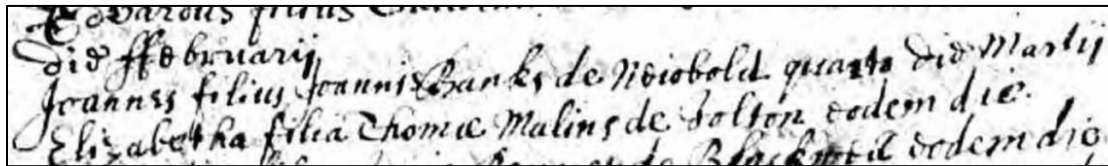 Edvardus filius
die ffebruarij
Joannes filius Joannis Banks de Neiobold quarto die Martij
Elizabetha filia Thomæ Malins de Tolton eodem die
de Blackwell eodem die